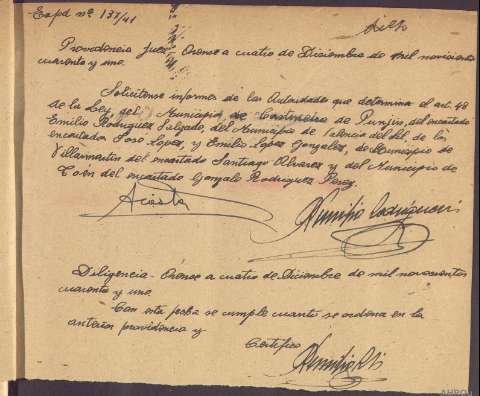 Expd nº 137/41
Providencia Juez - Orense a cuatro de Diciembre de mil novecientos
cuarenta y uno.
Solicitense informes de las Autoridades que determina el art. 48
de la Ley, del Municipio de Punjin, del encartado
Emilio Rodriguez Salgado, del Municipio de Valencia del Sil de los
encartados Jose Lopez, y Emilio Lopez Gonzalez, de Municipio de
Villamartin del encartado Santiago Alvarez y del Municipio de
del encartado Gonzalo Rodriguez Perez.
Acosta
Diligencia - Orense a cuatro de Diciembre de mil novecientos
cuarenta y uno.
Con esta fecha se cumple cuanto se ordena en la
anterior providencia y
Certifico